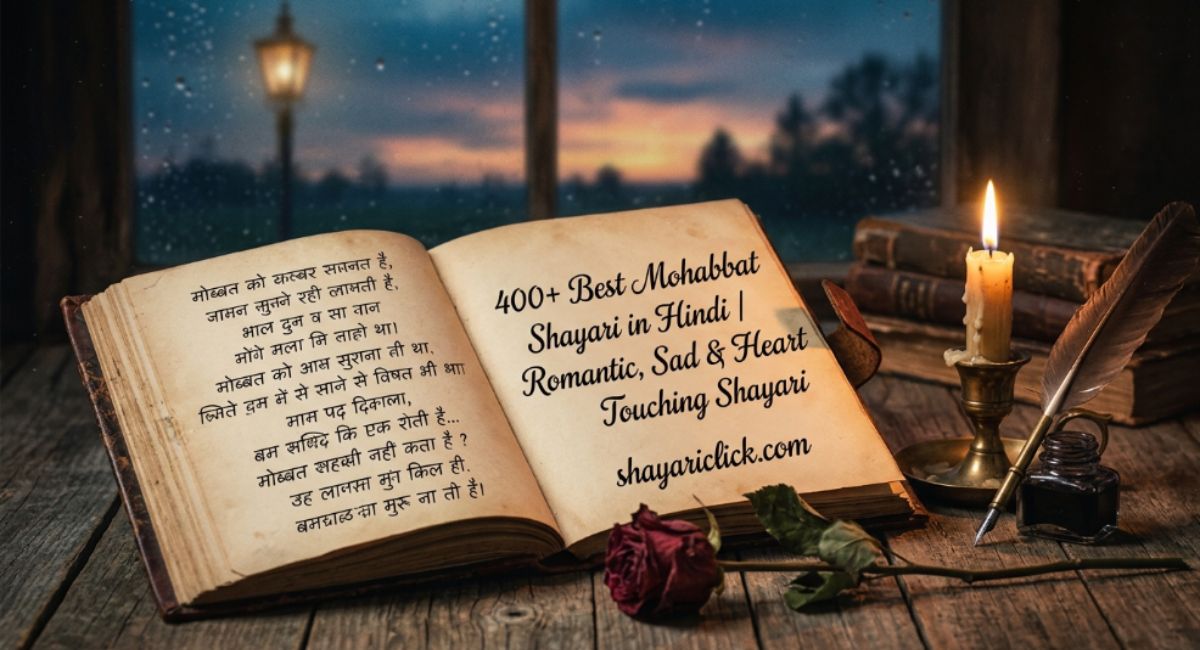 मोब्बत को कस्बर सानत है,
जामन मुनने रही लामती है,
भाल दुन व सा तान
मोंगे मला मि नाहो था।
मोब्बत को आम सुराना ती था.
दम में से साने से विषत भी
माम पद दिकाला,
बम कि एक रोती है...
मोब्बत नहीं कता है ?
उह लानसा मुंन किल ही.
मुरू ना ती है।
400+ Best Mohabbat
Shayari in Hindi |
Romantic, Sad & Heart
Touching Shayari
shayariclick.com